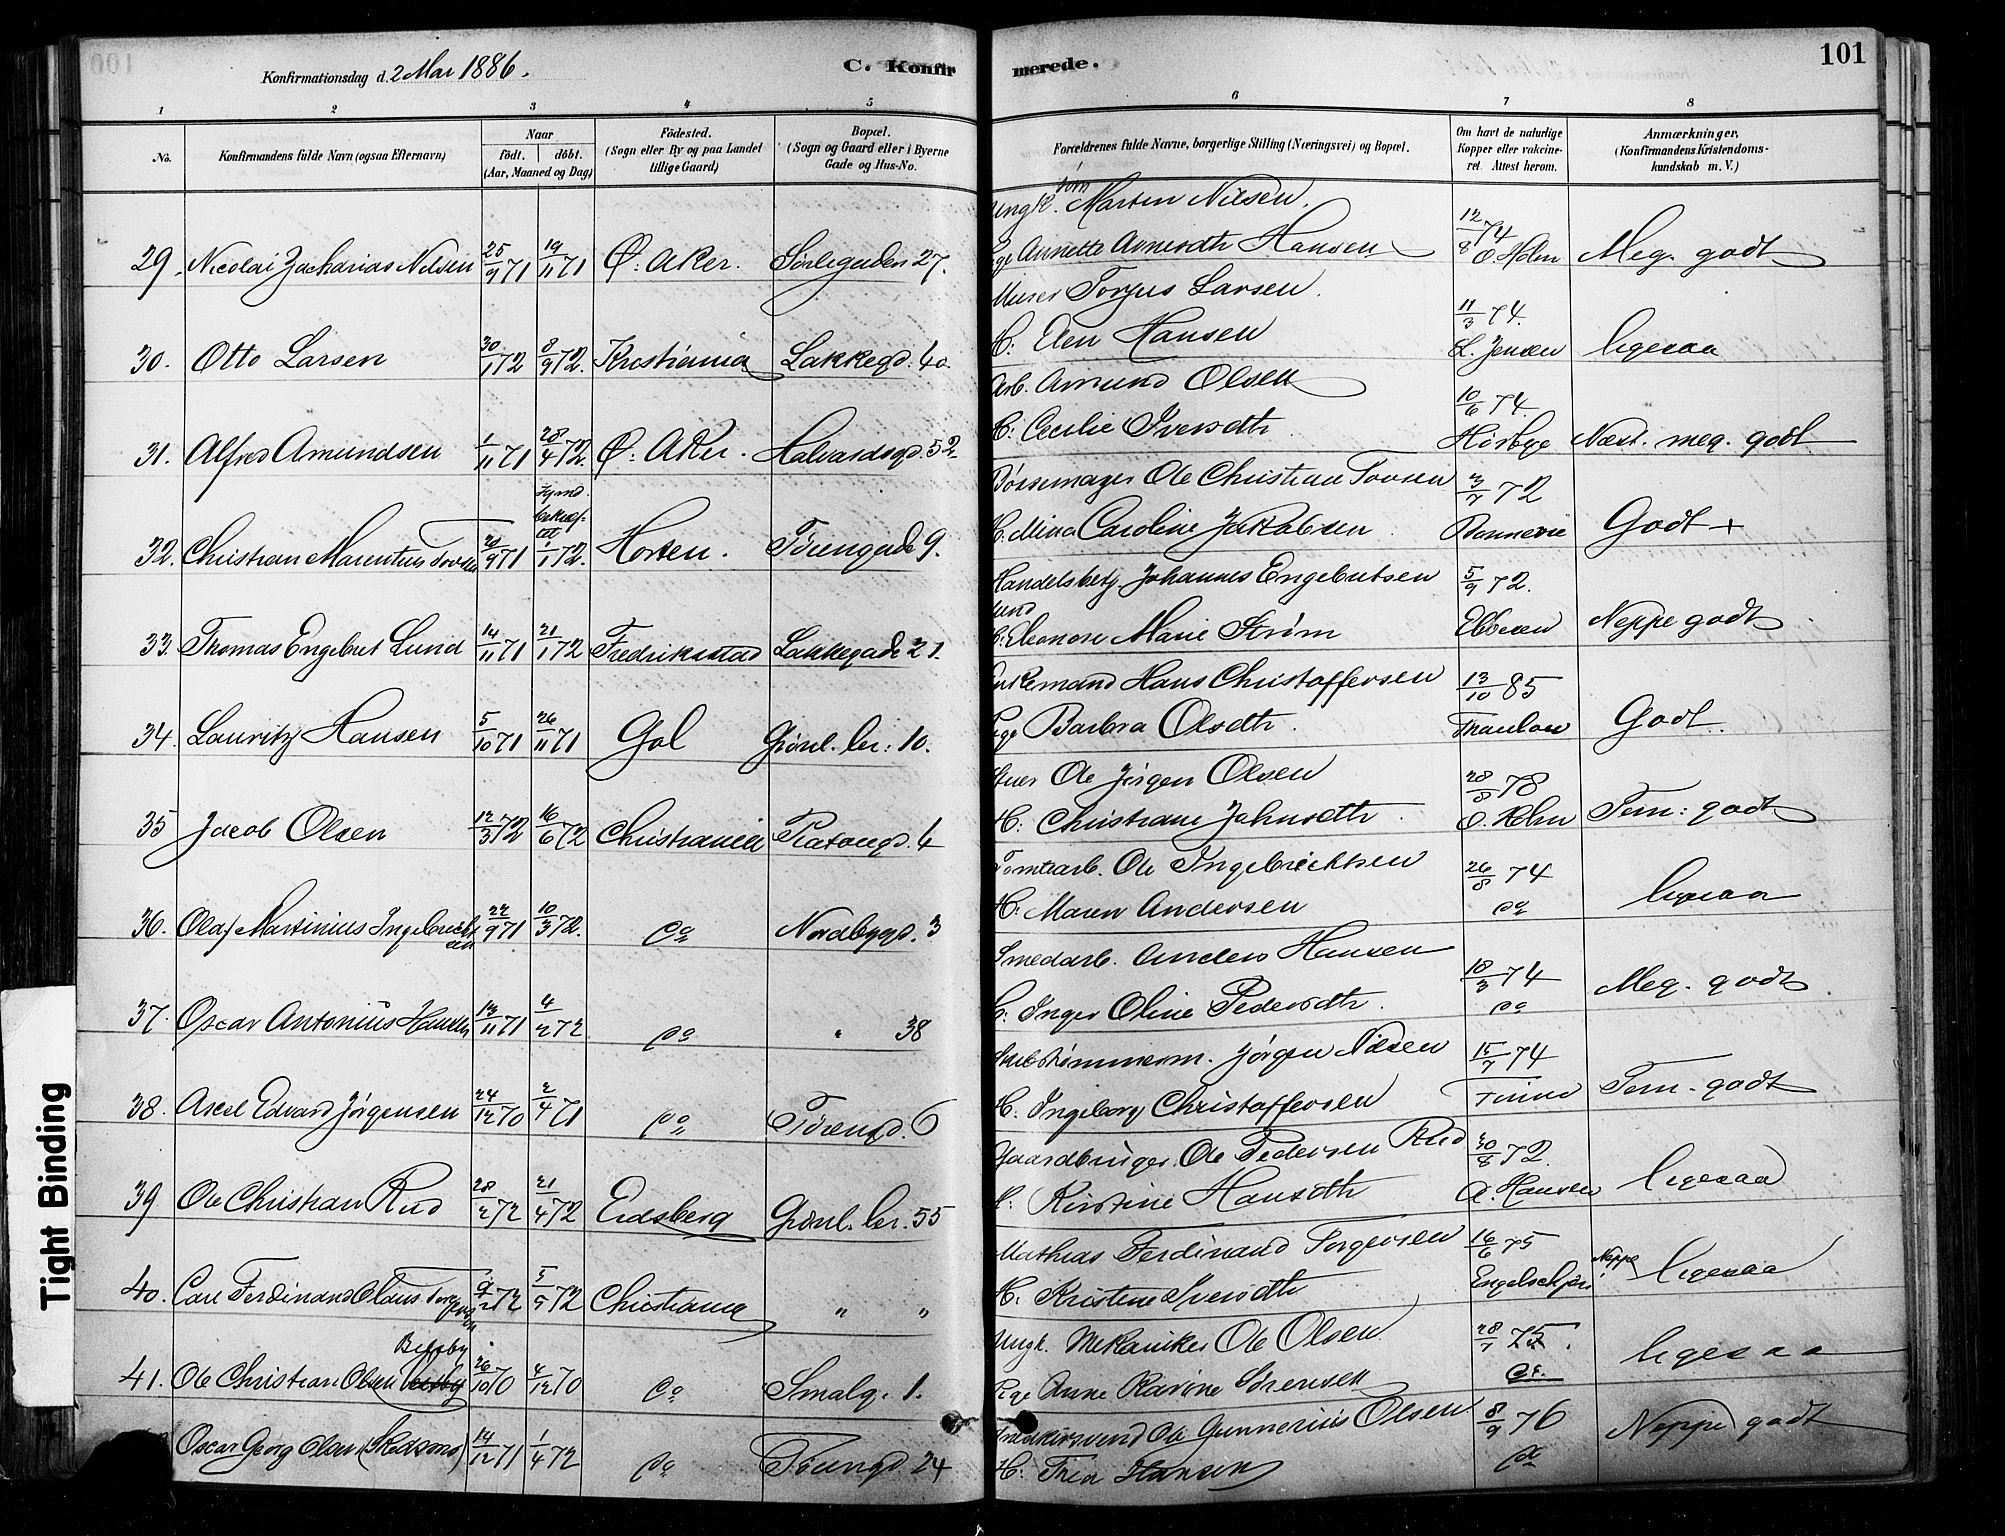 Konfirmationsdag d. 2 Mai 1886.
C. Konfir
merede.
101
1 2 3 4 5 6 7 8
No.
Konfirmandens fulde Navn (ogsaa Efternavn)
Naar
født. døbt.
(Aar, Maaned og Dag)
Fødested.
(Sogn eller By og paa Landet
tillige Gaard)
Bopæl.
(Sogn og Gaard eller i Byerne
Gade og Hus-No.
Forældrenes fulde Navne, borgerlige Stilling (Næringsvei) og Bopæl.
Om havt de naturlige
Kopper eller vakcine-
ret. Attest herom.
Anmærkninger.
(Konfirmandens Kristendoms-
kundskab m. V.)
Ungk. Martin Nilsen.
29. Nicolai Zacharias Nilsen 25/9 71 19/11 71 Ø. Aker. Sørligaden 27. Pge Annette Arnesdtr Hansen 12/8 74 O. Holm Meg. godt
Murer Torjus Larsen.
30. Otto Larsen 30/1 72 8/9 72. Kristiania Lakkegd. 40. H. Elen Hansen 11/3 74. L. Jensen ligesaa
Arb. Amund Olsen
31. Alfred Amundsen 1/11 71 28/4 72. Ø. Aker. Halvardsgd. 52 H. Cecilie Iversdtr. 10/6 74. Hørbye Næst. meg. godt
Bøssemager Ole Christian Tovsen
32. Christian Marentius Tovsen 20/9 71 1/1 72. Horten. Tøiengade 9. H. Mina Caroline Jakobsen 3/7 72 Bonnevie Godt +
Handelsbetj. Johannes Engebretsen
Lund
33. Thomas Engebret Lund 14/11 71 21/1 72 Fredrikstad Lakkegade 21. H. Eleonore Marie Strøm 5/9 72. Ebbesen Neppe godt
Enkemand Hans Christoffersen
34. Lauritz Hansen 5/10 71 26/11 71 Gol Grønl. ler: 10. Pge Barbra Olsdtr. 13/10 85 Thaulow Godt.
Ole Jørgen Olsen
35 Jacob Olsen 12/3 72 16/6 72 Christiania Platougd. 4 H: Christiane Johnsdtr. 28/8 78 O. Holm Tem: godt
Tomtearb. Ole Ingebrichtsen
36. Olaf Martinius Ingebricht
sen 22/9 71 10/3 72. do Nordbygd. 3 H: Maren Andersen 26/8 74 do ligesaa
Smedarb. Anders Hansen
37. Oscar Antonius Hansen 13/11 71 4/2 72 do " 38 H. Inger Oline Pedersdtr. 18/3 74 do Meg. godt
Tømmerm. Jørgen Nilsen
38. Axel Edvard Jørgensen 24/12 70 2/4 71 do Tøiengd. 6 H. Ingeborg Christoffersen 15/7 74 Tem. godt
Gaardbruger Ole Pedersen Rud
39 Ole Christian Rud 28/2 72 21/4 72 Eidsberg Grønl. ler. 55 H. Kirstine Hansdtr 30/8 72. A. Hansen ligesaa
Mathias Ferdinand Torgersen
40. Carl Ferdinand Olaus Torgersen 9/2 72 5/5 72 Christiania " " H. Kristine Iversdtr 16/6 75 Engelschjøn Neppe ligesaa
Ungk. Mekaniker Ole Olsen
41. Ole Christian Olsen 26/10 70 4/12 70 do Smalg. 1. Pge Anne Karine Sørensen 28/7 75. do. ligesaa
Ole Gunnerius Olsen
Oscar Georg Olsen (Skedsmo) 14/12 71 1/4 72 do Tøiengd. 24 H: Thea Hansen 8/9 76 do Neppe godt
Tight Binding